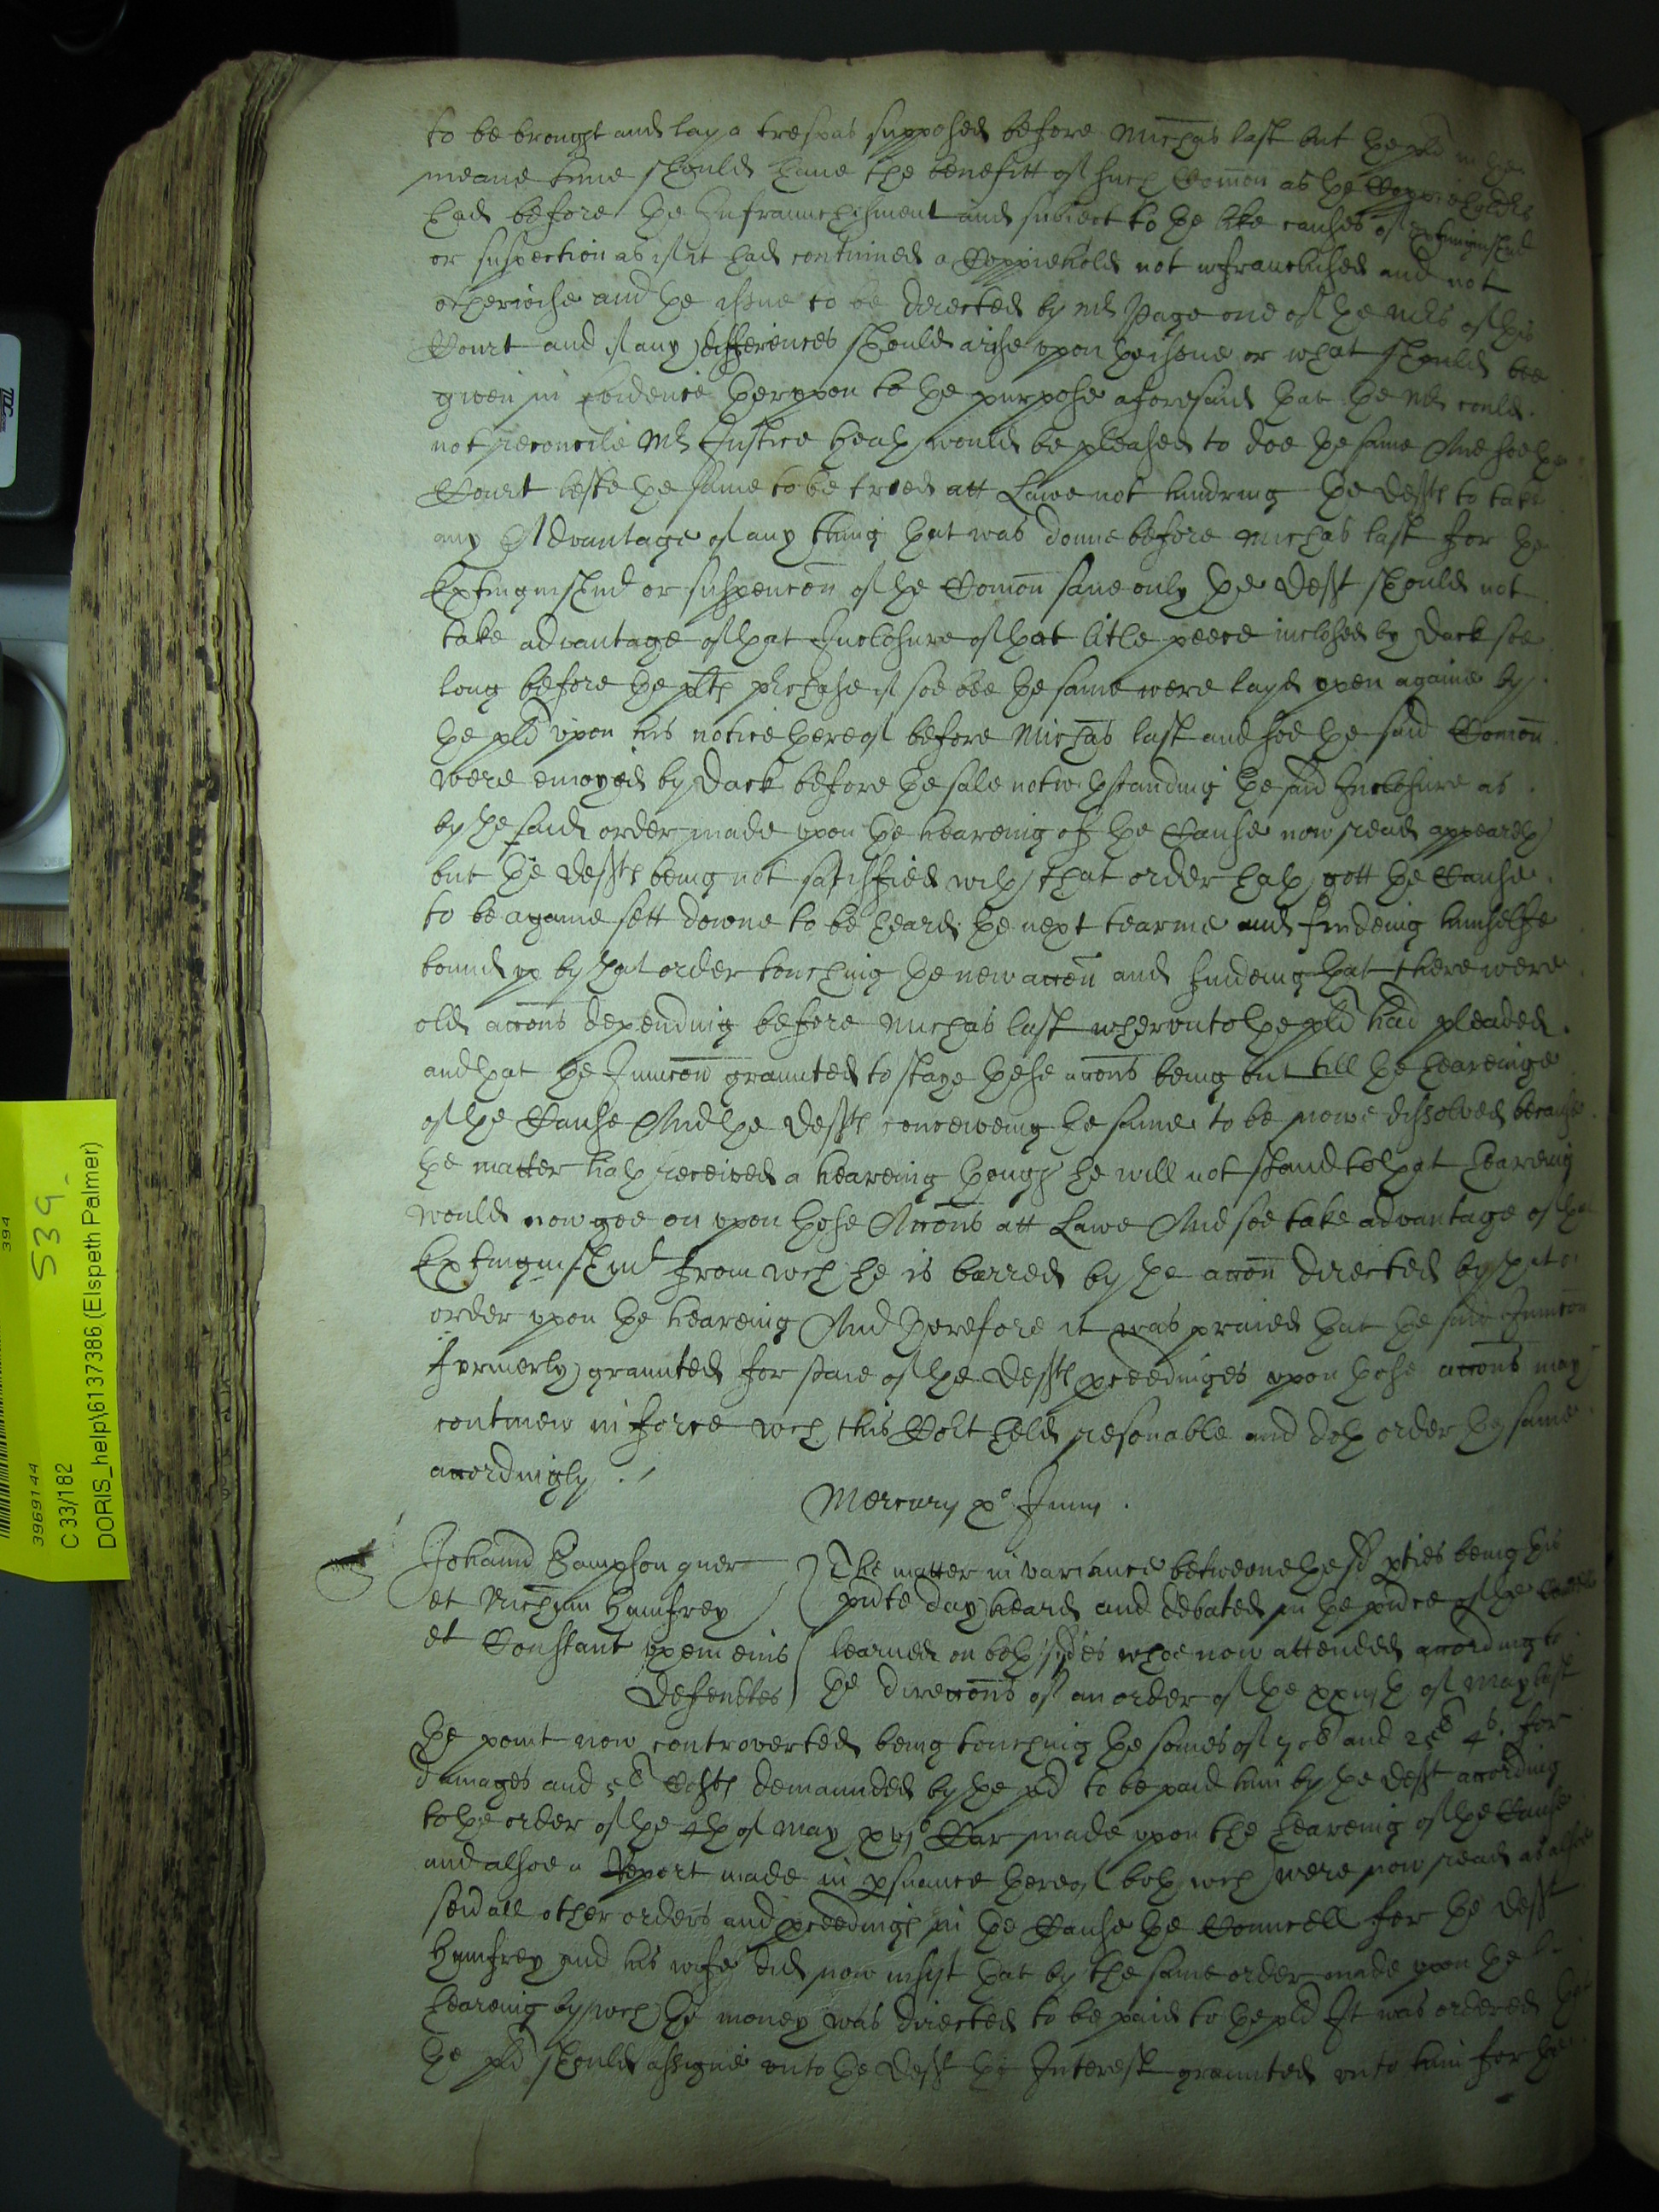 to be brought and lay a trespas supposed before Michas last but the plt in the
meane time should have the benefitt of such Common as the Coppieholders
had before the Infranchisment and subiect to the like causes of Extinguishmt
or suspection as if it had continued a Coppiehold not infranchised and not
otherwise and the issue to be directed by Mr Page one of the Mrs of this
Court and if any differences should arise upon the issue or what should bee
given in evidence therupon to the purpose aforesaid that the Mr could
not reconcile Mr Justice Heath would be pleased to doe the same And soe the
Court lefte the same to be tried att Lawe not hindring the Deft to take
any Advantage of any thing that was donne before Michas last for the
Extinguishmt or suspencon of the Comon save only the Deft should not
take advantage of that Inclosure of that litle peece inclosed by Dack soe
long before the plts purchase if soe bee the same were layd open againe by
the plt upon his notice thereof before Michas last and soe the said Comon
were enioyed by Dack before the sale notwthstanding the said Inclosure as
by the said order made upon the heareing of the Cause now read appeareth
but the Deft being not satisfied with that order hath gott the Cause
to be againe sett downe to be heard the next tearme and findeing himselfe
bound up by that order touching the new accon and findeing that there were
old accons depending before Michas last wherunto the plt had pleaded
and that the Iniuncon graunted to staye these accons being but till the heareinge
of the Cause And the Deft conceiveing the same to be nowe dissolved because
the matter hath received a heareing though he will not stand to that heareing
would now goe on upon those Accons att Lawe And soe take advantage of the
Extinguishmt from wch he is barred by the accon directed by that
order upon the heareing And therefore it was praied that the said Iniuncon
formerly graunted for staie of the Defts proceedinges upon those accons may
continew in force wch this Cort held resonable and doth order the same
accordingly
Mercury po Juny
Johannes Sampson quer
et Richum Humfrey
et Constant uxem eius
Defendtes
The matter in variance betweene the sd pties being this
pnte day heard and debated in the pnce of the Councell
learned on both sides whoe now attended according to
the direccons of an order of the xxiijth of May last
the point now controverted being touching the somes of 70li and 25li 4s for
damages and 5li Costs demaunded by the plt to be paid him by the Deft according
to the order of the 4th of May xvjo Car made upon the heareing of the Cause
and alsoe a Report made in psuance thereof both wch were now read as alsoe
sevall other orders and proceedings in the Cause the Councell for the Deft
Humfrey and his wife did now insist that by the same order made upon the
heareing by wch the money was directed to be paid to the plt It was ordered that
the plt should assigne unto the Deft the Interest graunted unto him for the
394
539
3969144
C 33/182
DORIS_help\6137386 (Elspeth Palmer)